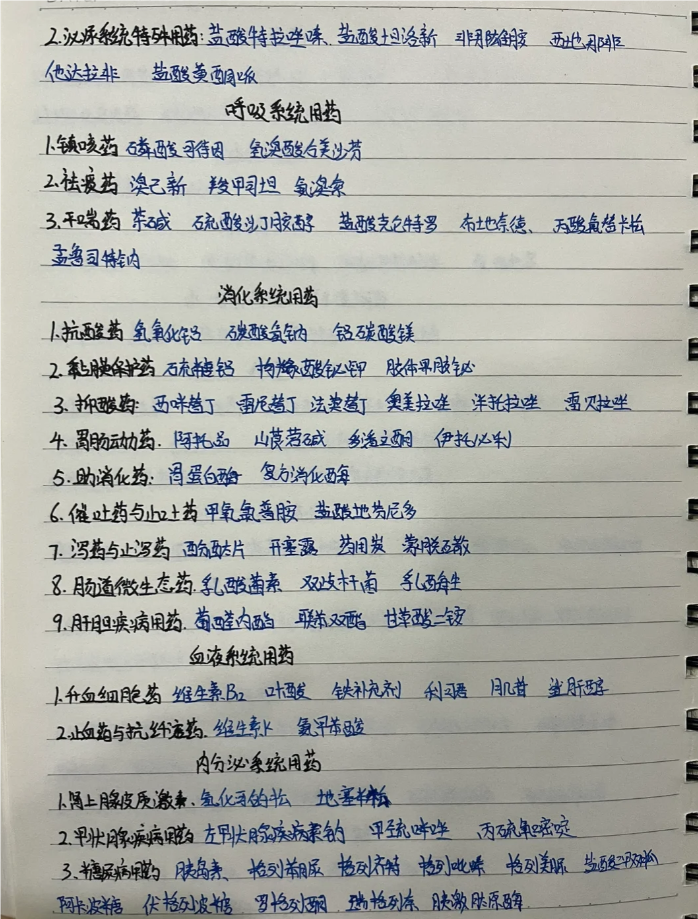 2.泌尿系统特殊用药:盐酸特拉唑嗪、盐酸坦洛新 非那雄胺 西地那非
他达拉非 盐酸黄酮哌
呼吸系统用药
1.镇咳药 磷酸可待因 氢溴酸右美沙芬
2.祛痰药 溴己新 羧甲司坦 氨溴索
3.平喘药 茶碱 硫酸沙丁胺醇 盐酸克仑特罗 布地奈德、丙酸氟替卡松
孟鲁司特钠
消化系统用药
1.抗酸药 氢氧化铝 碳酸氢钠 铝碳酸镁
2.黏膜保护药 硫糖铝 枸橼酸铋钾 胶体果胶铋
3.抑酸药:西咪替丁 雷尼替丁 法莫替丁 奥美拉唑 泮托拉唑 雷贝拉唑
4.胃肠动药.阿托品 山莨菪碱 多潘立酮 伊托必利
5.助消化药:胃蛋白酶 复方消化酶
6.催吐药与止吐药 甲氧氯普胺 盐酸地芬尼多
7.泻药与止泻药 酚酞片 开塞露 药用炭 蒙脱石散
8.肠道微生态药.乳酸菌素 双歧杆菌 乳酶生
9.肝胆疾病用药.葡醛内酯 联苯双酯 甘草酸二铵
血液系统用药
1.升血细胞药 维生素B12 叶酸 铁补充剂 利可君 肌苷 鲨肝醇
2.止血药与抗纤溶药.维生素K 氨甲苯酸
内分泌系统用药
1.肾上腺皮质激素.氢化可的松 地塞米松
2.甲状腺疾病用药 左甲状腺疾病素钠 甲巯咪唑 丙硫氧嘧啶
3.糖尿病用药 胰岛素、格列本脲 格列齐特 格列吡嗪 格列美脲 盐酸二甲双胍
阿卡波糖 伏格列波糖 罗格列酮 瑞格列奈 胰激肽原酶